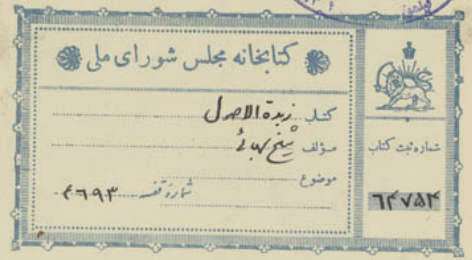 کتابخانه مجلس شورای ملی
کتاب زبدة الاصول
مؤلف شیخ بهائی
موضوع
شماره قفسه ۴۶۹۳
شماره ثبت کتاب
۶۴۷۵۴